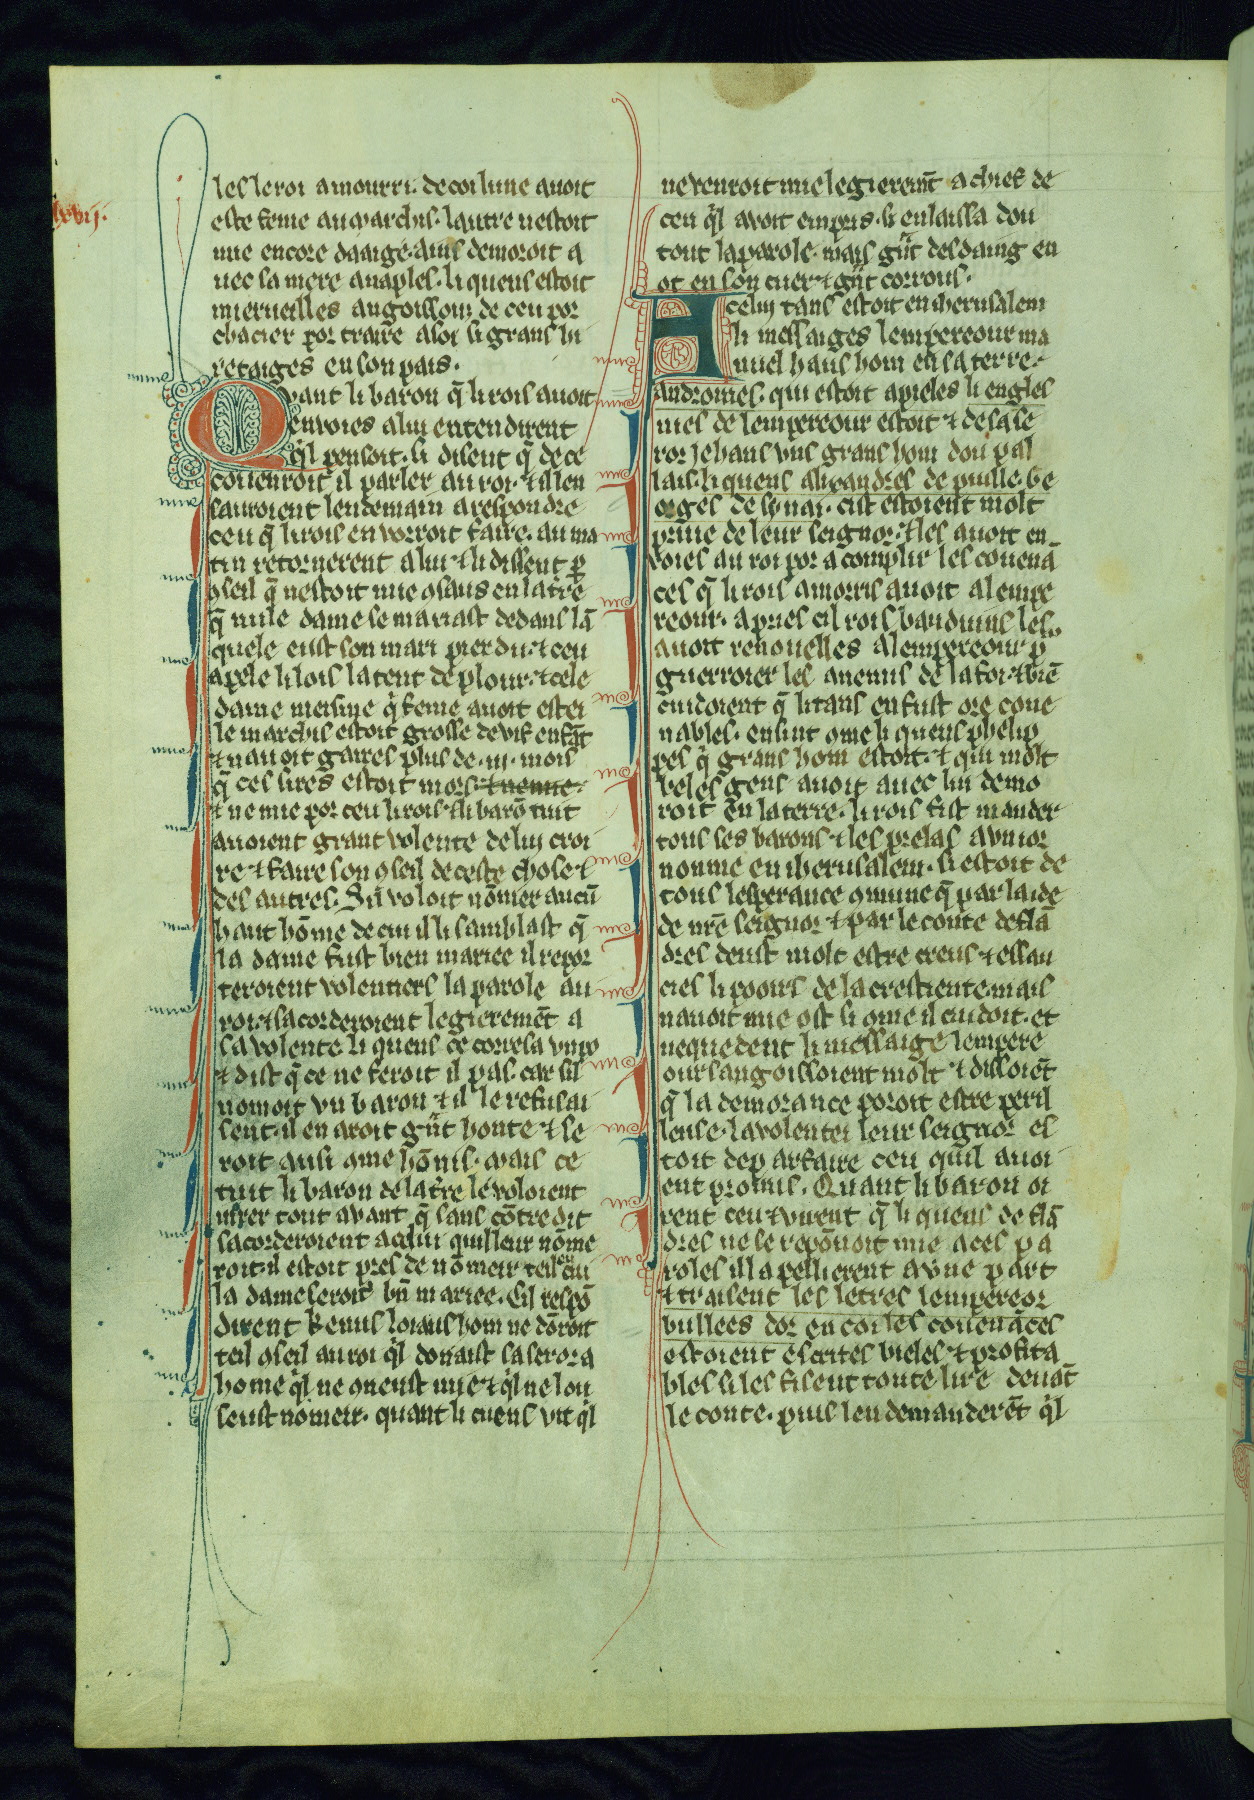 les le roi amourri. de coi lune auoit
este feme au marchis. lautre nestoit
mie encore daaige. ains demoroit a
uec sa mere anaples. li queus estoit
mierueilles angoissous de ceu por
chacier por traire a soi si grans hi
retaiges en son pais.
Quant li baron q̄ li rois auoit
enuoies a lui entendirent
q̇l pensoit. si disent q̄ de ce
couenroit il parler au roi. ⁊ il len
sauroient lendemain a respondre
ceu q̄ li rois en vorroit faire. au ma
tin retornerent a lui ⁊ li dissent ꝑ
ꝯseil q̄ nestoit mie ꝯsaus en la t̄re
q̄ nule dame se mariast dedans lā
quele eust son mari pierdu. ⁊ ceu
apele li lois la tent de plour. ⁊ cele
dame meisme q̇ feme auoit estei
le marchis estoit grosse de vif enfāt
⁊ nauoit gaires plus de .iii. mois
q̄ ces sires estoit mors. ⁊ nemie.
⁊ ne mie por ceu li rois ⁊ li barō tuit
auoient grant volente de lui croi
re ⁊ faire son ꝯseil de ceste chose ⁊
des autres. Sil voloit nōmer aucū
haut hōme de cui il li samblast q̄
la dame fust bien mariee il repor
teroient volentiers la parole au
roi. ⁊ sacorderoient legieremēt a
sa volente. li queus ce corresa vn po
⁊ dist q̄ ce ne feroit il pas. car sil
nomoit vn baron ⁊ il le refusai
sent. il en aroit gn̄t honte ⁊ se
roit ausi ꝯme hōnis. mais ce
tuit li baron de la t̄re le voloient
iurer tout auant q̄ sans cōtredit
sacorderoient a celui quil leur nōme
roit. il estoit pres de nōmeir teil a cui
la dame seroit bn̄ mariee. Cil respō
dirent Ke nus loiaus hom ne dōroit
teil ꝯseil au roi q̇l donaist sa seror a
home q̇l ne ꝯneust mie ⁊ q̇l ne lou
seust nomeir. quant li cuens vit q̇l
ne venroit mie legieremt̄ a chief de
ceu q̇l auoit empris. si en laissa dou
tout la parole. mais gn̄t desdaing en
ot en son cuer ⁊ gn̄t corrous.
A celui tans estoit en iherusalem
li messaiges lempereour ma
nuel haus hom en sa terre.
andromes. qui estoit apieles li engles
nies de lempereour estoit ⁊ de sa se
ror Jehans vns grans hom dou pal
lais. li quens alixandres de puille. Ge
orges de synai. cist estoient molt
priue de leur seignor. ⁊ les auoit en
voies au roi por acomplir les couenā
ces q̄ li rois amorris auoit a lempe
reour. apries cil rois bauduins les
auoit renouelles a lempereour ꝑ
guerroier les anemis de la foi. ⁊ biē
cuidoient q̄ li tans en fust ore coue
nables. ensint ꝯme li queus phelip
pes q̇ grans hom estoit. ⁊ qui molt
beles gens auoit auec lui demo
roit en la terre. li rois fist mander
tous ses barons ⁊ les prelas a vn ior
nonme en iherusalem. si estoit de
tous lesperance ꝯmune q̄ par laide
de nr̄e seignor ⁊ par le conte de flā
dres deust molt estre creus ⁊ essau
cies li pooirs de la crestiente. mais
nauoit mie ost si ꝯme il cuidoit. et
nequedent li messaige lempere
our sangoissoient molt ⁊ dissoiēt
q̄ la demorance poroit estre peril
leuse. la volentei leur seignor es
toit de parfaire ceu quil auoi
ent promis. Quant li baron oi
rent ceu ⁊ virent q̄ li queus de flā
dres ne se repōnoit mie a ces pa
roles il lapellierent a vne part
⁊ traisent les letres lempereor
bullees dor en coi les couenāces
estoient escrites bieles ⁊ profita
bles si les fisent toute lire deuāt
le conte. puis len demanderēt q̇l